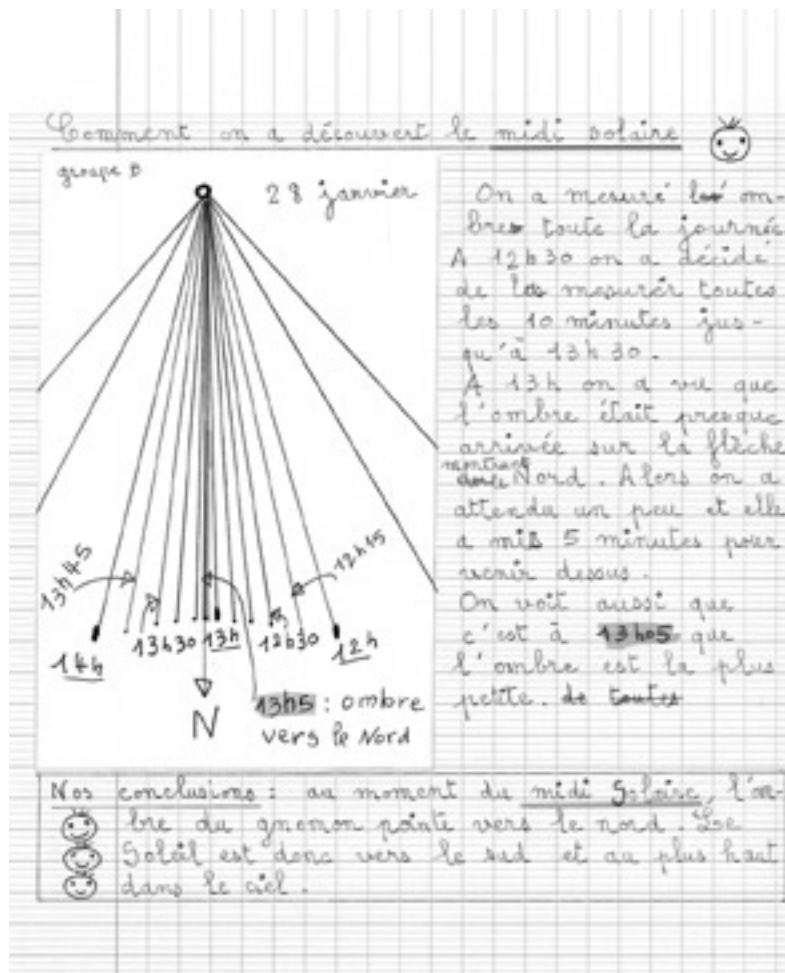 Comment on a découvert le midi solaire
groupe B
28 janvier
13h45
12h15
14h
13h30
13h
12h30
12h
N
13h5 : ombre
vers le Nord
On a mesuré les om-
bres toute la journée
A 12h30 on a décidé
de les mesurer toutes
les 10 minutes jus-
qu'à 13h30.
A 13h on a vu que
l'ombre était presque
arrivée sur la flèche
montrant le Nord. Alors on a
attendu un peu et elle
a mis 5 minutes pour
venir dessus.
On voit aussi que
c'est à 13h05 que
l'ombre est la plus
petite. de toutes
Nos conclusions : au moment du midi Solaire, l'om-
bre du gnomon pointe vers le nord. Le
Soleil est donc vers le sud et au plus haut
dans le ciel.